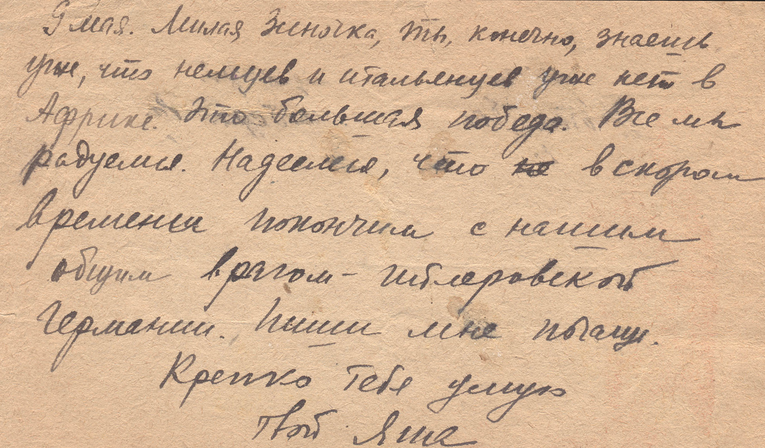 9 мая. Милая Зиночка, ты, конечно, знаешь
уже, что немцев и итальянцев уже нет в
Африке. Это большая победа. Все мы
радуемся. Надеемся, что не в скором
времени покончим с нашим
общим врагом - гитлеровской
Германии. Пиши мне почаще.
Крепко тебя целую
твой Яша